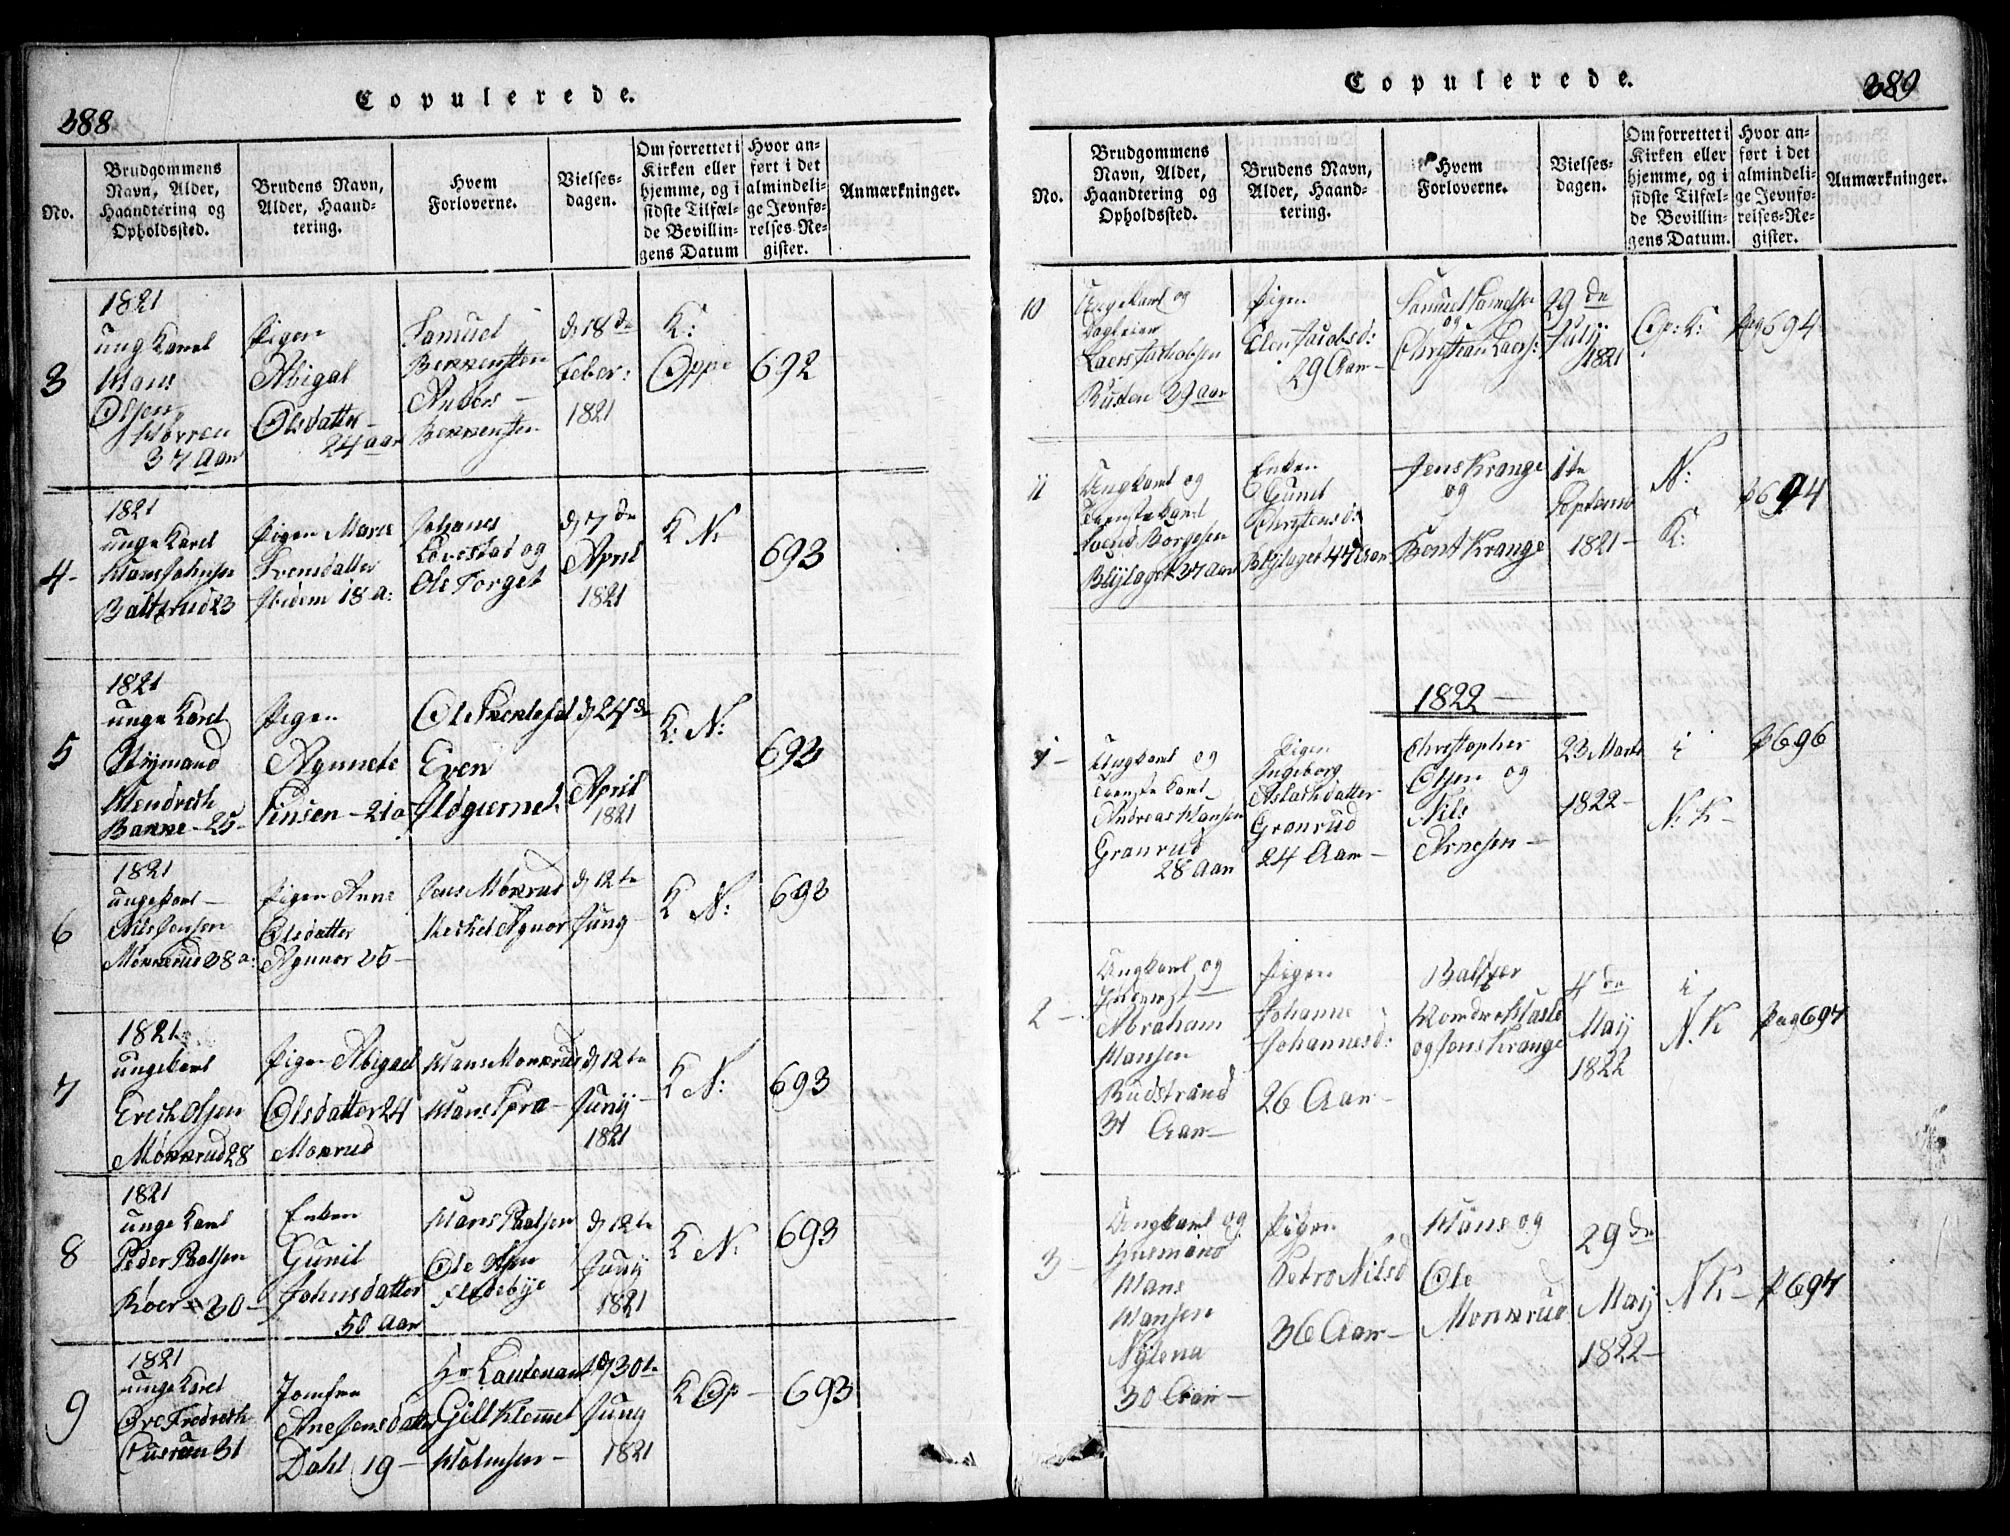 388
Copulerede.
No.
Brudgommens
Navn, Alder,
Haandtering og
Opholdssted.
Brudens Navn,
Alder, Haand-
tering.
Hvem
Forloverne.
Vielses-
dagen.
Om forrettet i
Kirken eller
hjemme, og i
sidste Tilfæl-
de Bevillin-
gens Datum
Hvor an-
ført i det
almindeli-
ge Jevnfø-
relses-Re-
gister.
Anmærkninger.
3
1821
ung Karl
Hans
Olsen
37 Aar
Pigen
Abigal
Olsdatter
24 aar
Samuel
Anders
d 18de
Feber:
1821
K:
Oppe
692
4
1821
unge Karl
Hans Johnsen
23
Pigen Maria
Svensdatter
Ibidem 18 a:
Johanes
og
Ole Torget
d 7de
April
1821
K N
693
5
1821
unge Karl
Hendrich
Banne - 25
Pigen
Agunete
Finsen - 21 a
Even
d 24de
April
1821
K: N:
693
6
1821
unge Karl
Nils Jensen
Monrud 28 a:
Pigen Anne
Olsdatter
Agunor 26
Jens Monrud
Michel Agnor
d 12te
Juny
K N:
693
7
1821
unge Karl
Erich Olsen
Monrud 28
Pigen Abigael
Olsdatter 24
Monrud
Hans Monrud
d 12te
Junij
1821
K N:
693
8
1821
unge Karl
Peder Paalsen
Roer - 30
Enken
Gunil
Johnsdatter
50 Aar
Hans Paalsen
Ole Olsen
Fladebye
d 12te
Juny
1821
K N:
693
9
1821
unge Karl
Ove Fredrich
31
Jomfru
Ane Jensdatter
Dahl 19
Hr Lautenant
Gill Klemmet
Holmsen
d 30te
Juny
1821
K Op
693
Copulerede.
389
No.
Brudgommens
Navn, Alder,
Haandtering og
Opholdssted.
Brudens Navn,
Alder, Haand-
tering.
Hvem
Forloverne.
Vielses-
dagen.
Om forrettet i
Kirken eller
hjemme, og i
sidste Tilfæl-
de Bevillin-
gens Datum.
Hvor an-
ført i det
almindeli-
ge Jevnfø-
relses-Re-
gister.
Anmærkninger.
10
Ungkarl og
Lars Jachobsen
Rusten 29 aar
Pigen
Elen Jacobsd:
29 Aar
Samuel
og
Christian Lars:
29de
Julij
1821
Op: K:
Pag 694
11
Ungkarl og
Tieneste Karl
Svend Borgesen
Blijlaget 37 Aar
Enken
Gunil
Christensd:
Blijlaget 44 Aar
Jens Krange
og
Bent Krange
1te
Septemb
1821
N:
K:
P 694
1822
1
Ungkarl og
Tieneste Karl
Andreas Hansen
Granrud
28 Aar
Pigen
Ingeborg
Aslachdatter
Granrud
24 Aar
Christopher
Olsen og
Nils
Arnesen
23 Marts
1822
i
N: K
P 696
2
Ungkarl og
Abraham
Hansen
Budstrand
31 Aar
Pigen
Johanne
Johannesd:
26 Aar
Baltzer
og Jens Krange
4de
May
1822
i
N. K
Pag 694
3
Ungkarl og
Husmand
Hans
Hansen
30 Aar
Pigen
Petro Nilsd
36 Aar
Hans og
Ole
Monrud
29de
Maij
1822
N K
P 694